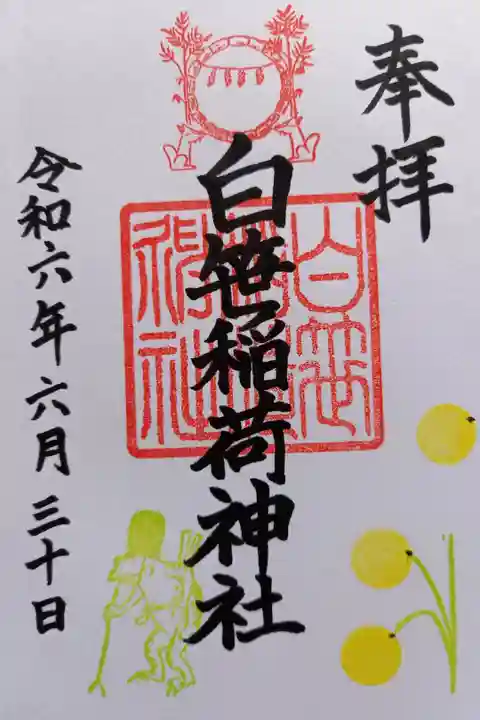 奉拝
白笹稲荷神社
白笹稲荷神社
令和六年六月三十日